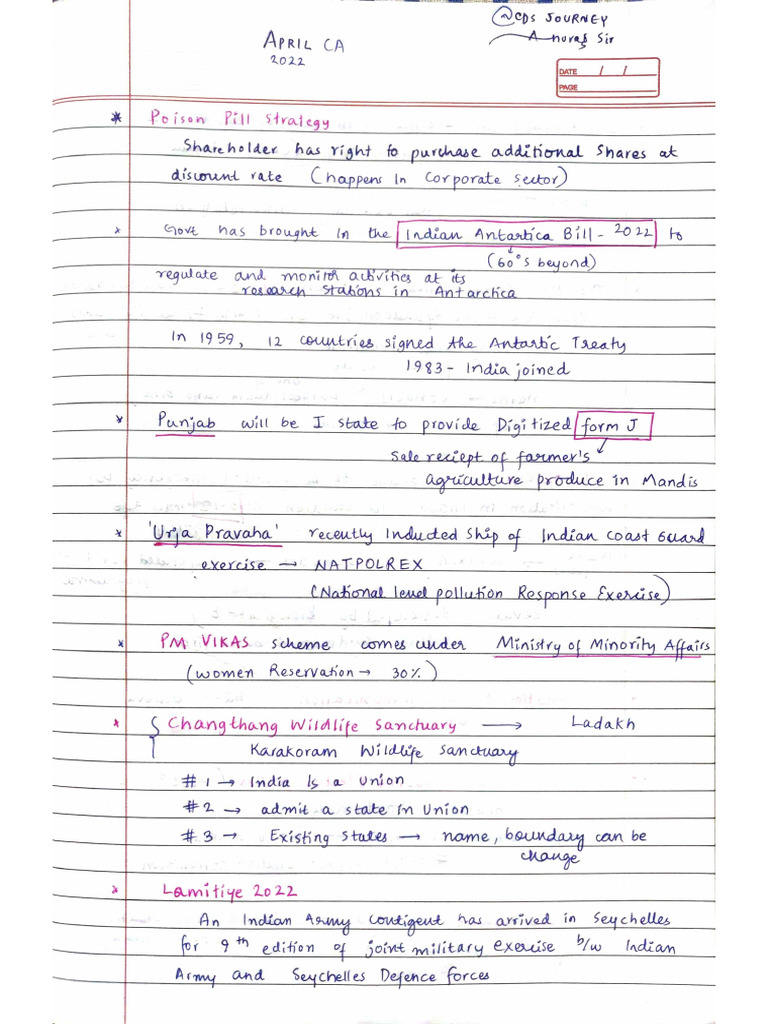 @CDS JOURNEY
Anurag Sir
APRIL CA
2022
DATE / /
PAGE
* Poison Pill Strategy
Shareholder has right to purchase additional shares at
discount rate (happens in corporate sector)
* Govt has brought in the Indian Antartica Bill - 2022 to
(60°S beyond)
regulate and monitor activities at its
research stations in Antarctica
In 1959, 12 countries signed the Antartic Treaty
1983 - India joined
* Punjab will be I state to provide Digitized form J
Sale reciept of farmer's
agriculture produce in Mandis
* 'Urja Pravaha' recently Inducted ship of Indian Coast Guard
exercise → NATPOLREX
(National level pollution Response Exercise)
* PM VIKAS scheme comes under Ministry of Minority Affairs
(women Reservation → 30%)
* Changthang Wildlife Sanctuary → Ladakh
Karakoram Wildlife Sanctuary
#1 → India Is a Union
#2 → admit a state in Union
#3 → Existing States → name, boundary can be
change
* Lamitiye 2022
An Indian Army contigent has arrived in Seychelles
for 9th edition of joint military exercise b/w Indian
Army and Seychelles Defence forces